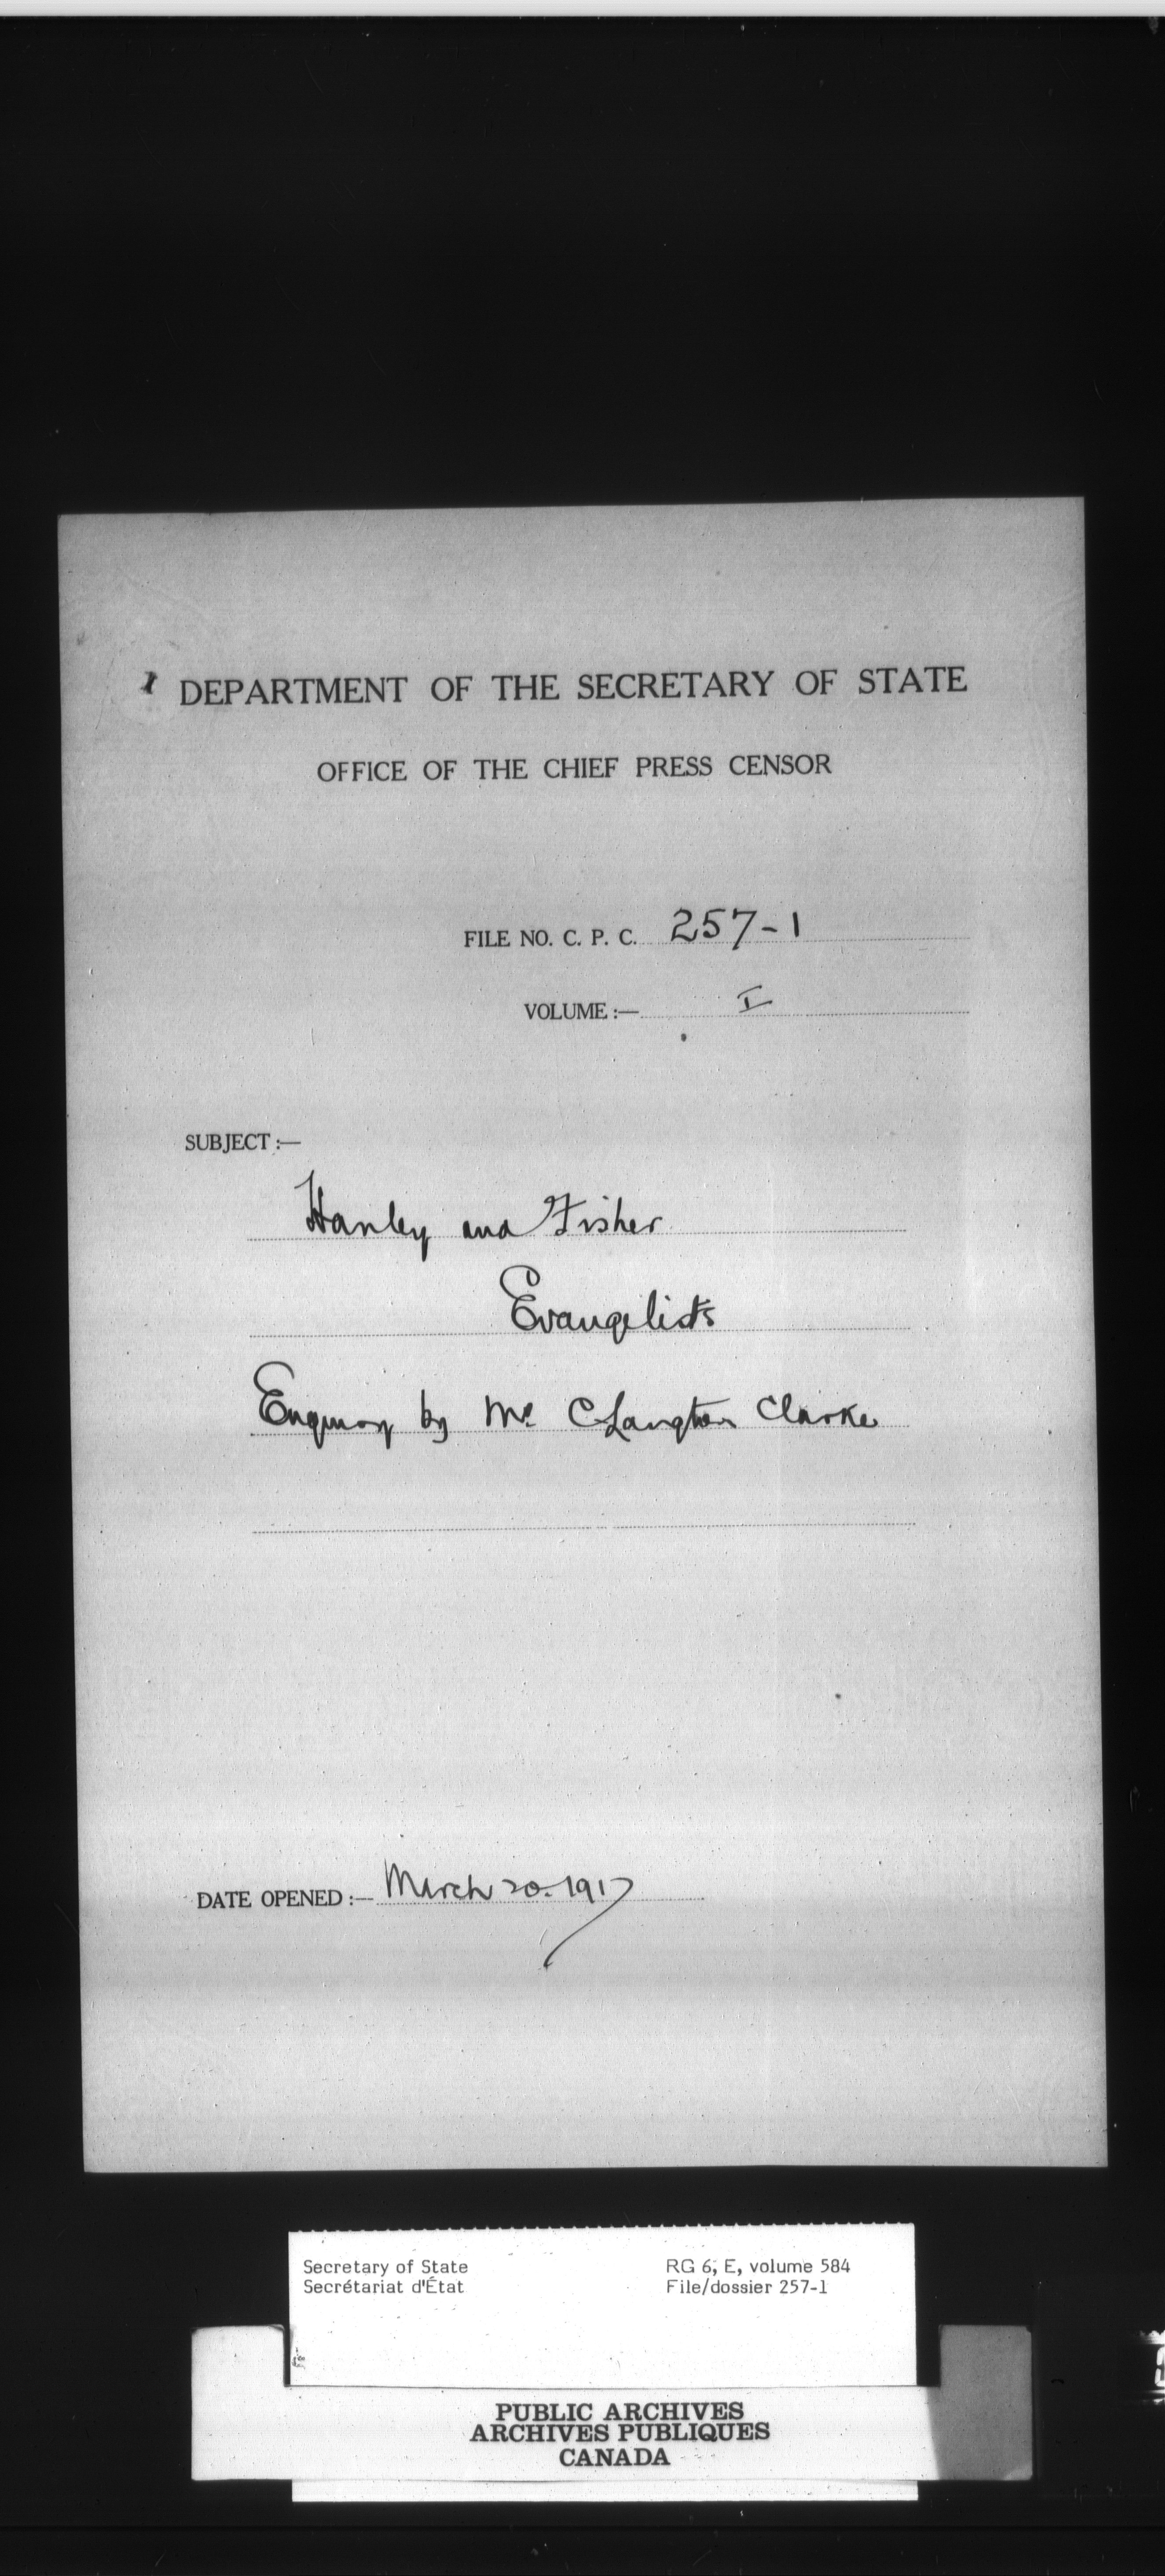 DEPARTMENT OF THE SECRETARY OF STATE
OFFICE OF THE CHIEF PRESS CENSOR
FILE NO. C. P. C. 257-1
VOLUME :— I
SUBJECT :—
Hanley and Fisher
Evangelists
Enquiry by Mr. C Langton Clarke
DATE OPENED :— March 20. 1917
Secretary of State RG 6, E, volume 584
Secrétariat d'État File/dossier 257-1
PUBLIC ARCHIVES
ARCHIVES PUBLIQUES
CANADA